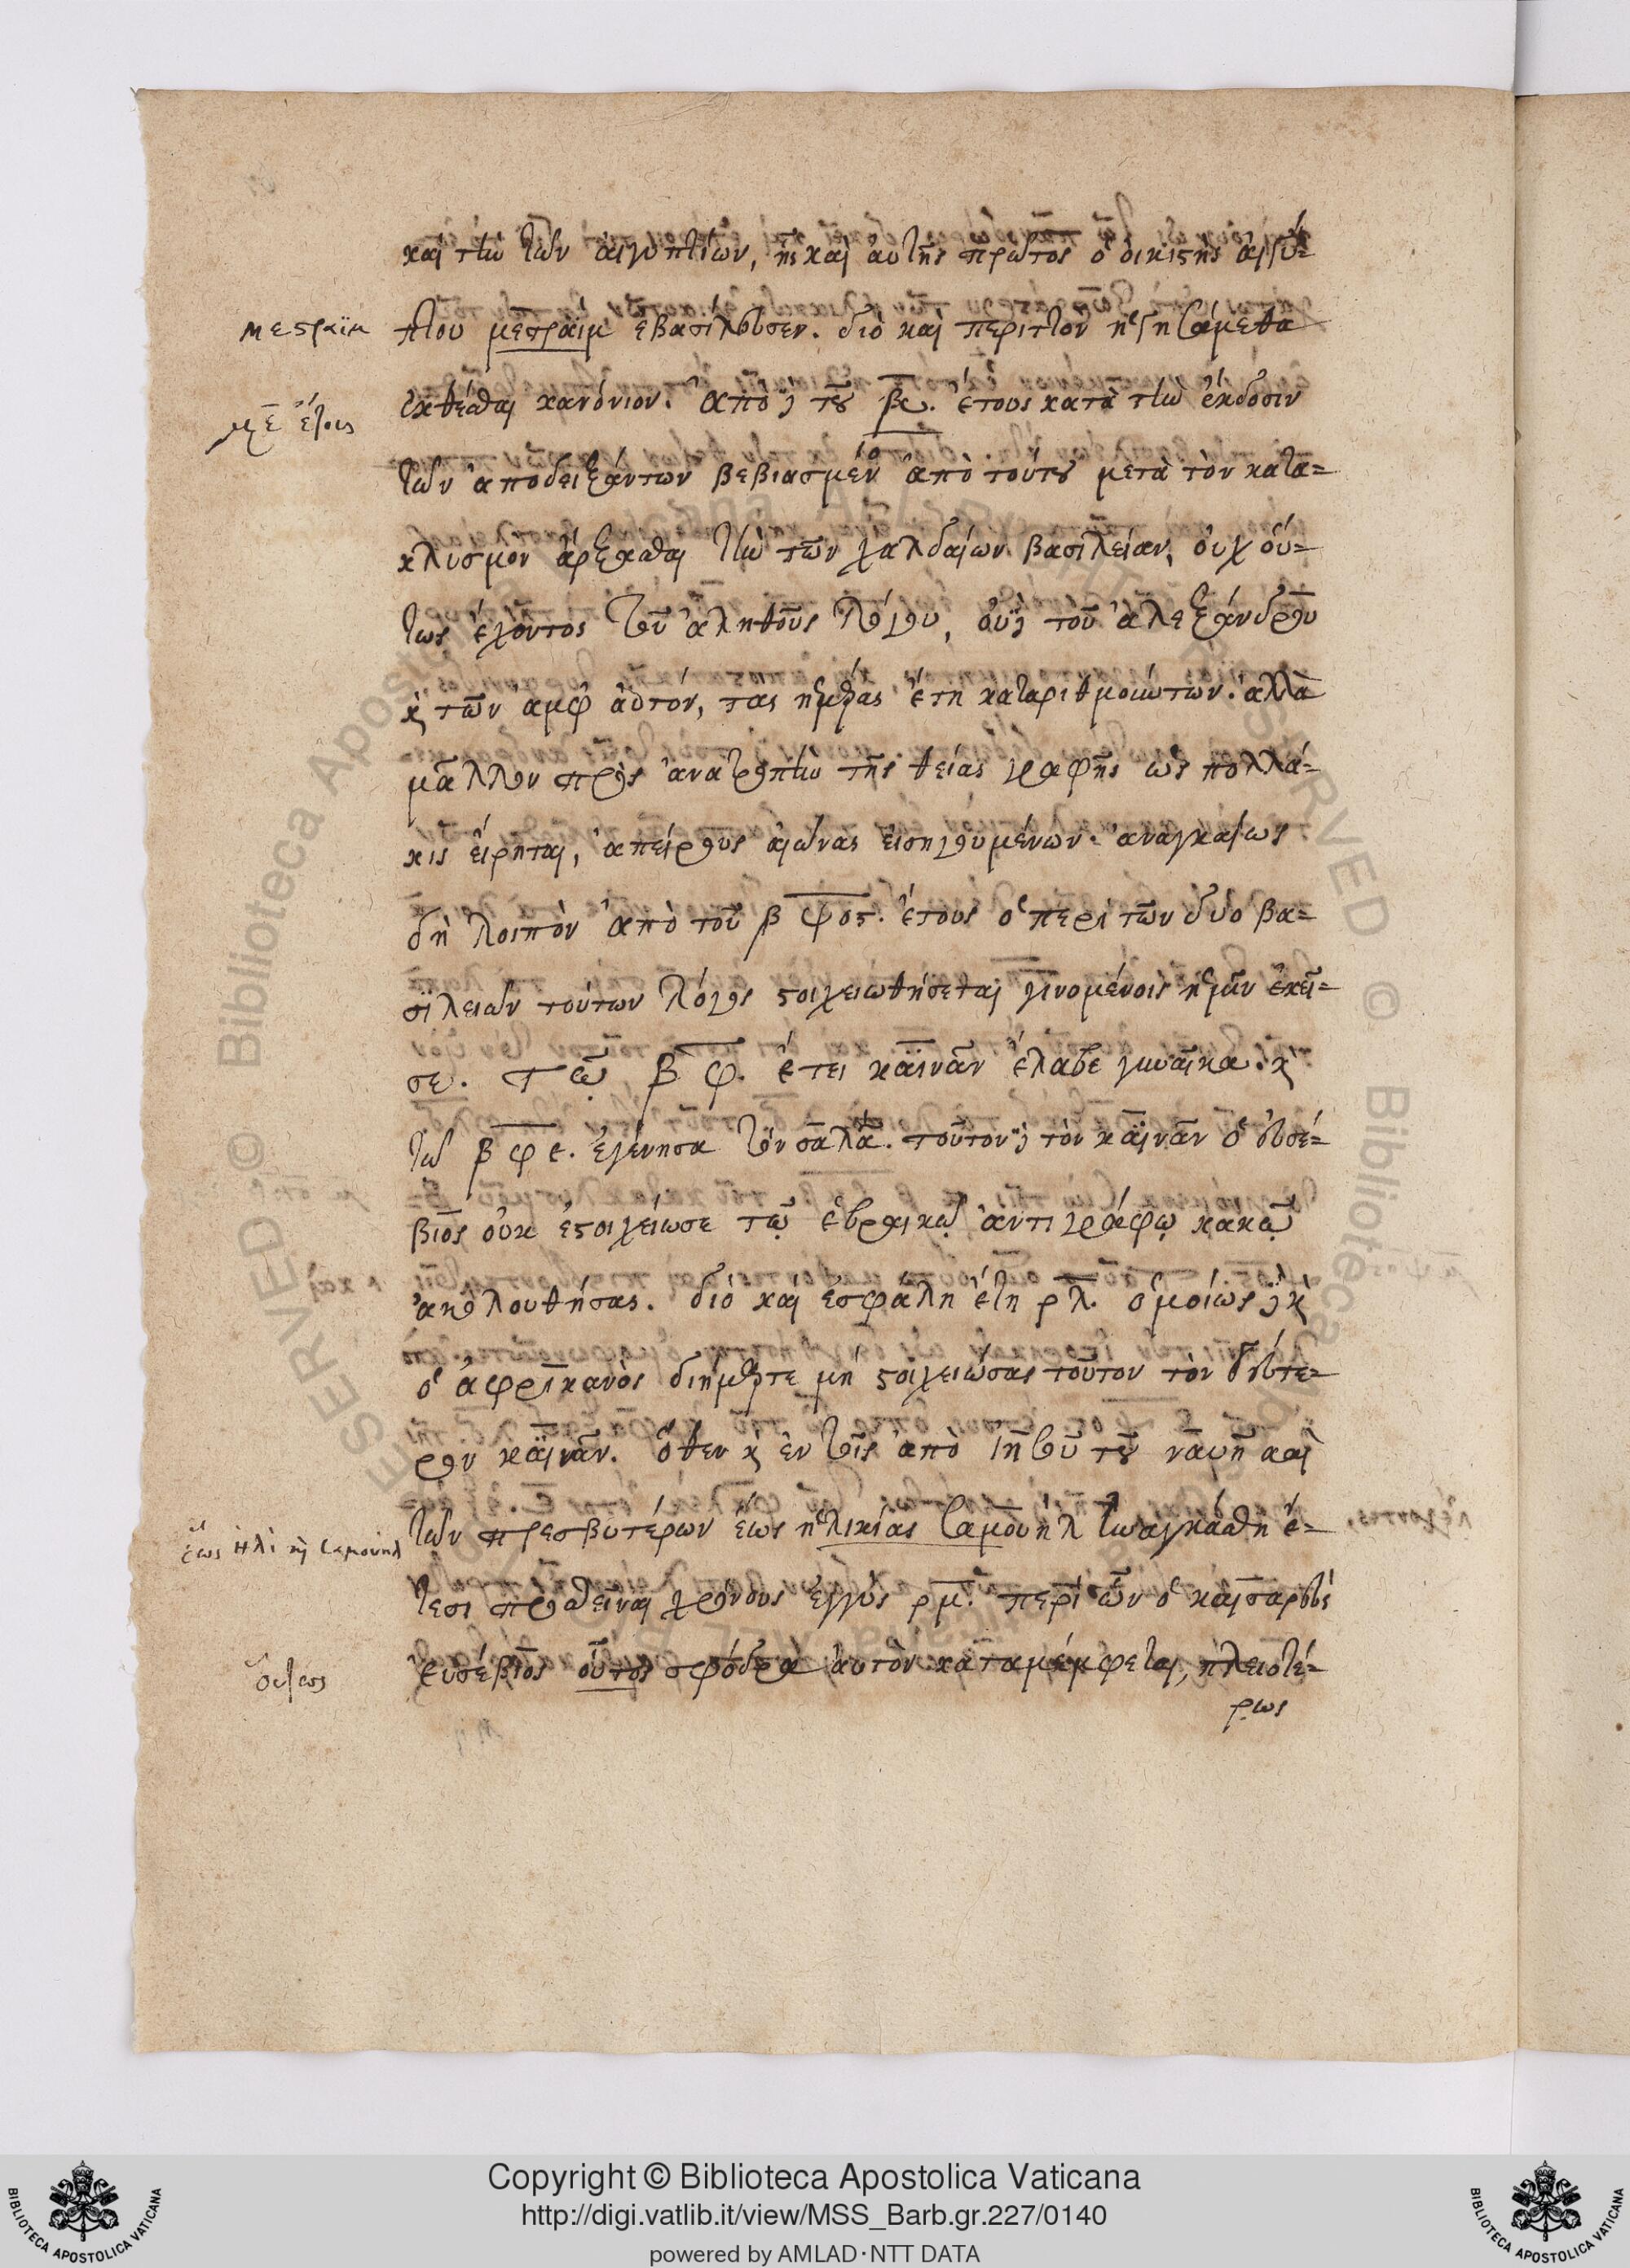 καὶ τὴν τῶν αἰγυπτίων, ἧς καὶ αὐτῆς πρῶτος ὁ οἰκιστὴς αἰγύ-
μεστραϊμ
πτου μεστραϊμ ἐβασίλευσεν. διὸ καὶ περιττὸν ἡγησάμεθα
ἔτους
ἐκθέσθαι κανόνιον. ἀπὸ δὲ τοῦ ἔτους κατὰ τὴν ἔκδοσιν
τῶν ἀποδειξάντων βεβιασμέν ἀπὸ τούτου μετὰ τὸν κατα-
κλυσμὸν ἄρξασθαι τὴν τῶν χαλδαίων βασιλείαν, οὐχ οὕ-
τως ἔχοντος τοῦ ἀληθοῦς λόγου, οὐδὲ τοῦ ἀλεξάνδρου
καὶ τῶν ἀμφ αὐτόν, τὰς ἡμέρας ἔτη καταριθμούντων. ἀλλὰ
μᾶλλον πρὸς ἀνατροπὴν τῆς θείας γραφῆς ὡς πολλά-
κις εἴρηται, ἀπείρους αἰῶνας εἰσηγουμένων. ἀναγκαίως
δὴ λοιπὸν ἀπὸ τοῦ β ψος. ἔτους ὁ περὶ τῶν δύο βα-
σιλειῶν τούτων λόγος στοιχειωθήσεται γινομένοις ἡμῖν ἐκεῖ-
σε. Τῷ β φ. ἔτει καϊνᾶν ἔλαβε γυναῖκα. καὶ
τῷ β φ ε. ἐγέννησα τὸν σαλᾶ. τοῦτον δὲ τὸν καϊνᾶν ὁ εὐσέ-
βιος οὐκ ἐστοιχείωσε τῷ ἑβραικῷ ἀντιγράφῳ κακῶ
ἀκολουθήσας. διὸ καὶ ἐσφάλη ἔτη ρλ. ὁμοίως δὲ καὶ
ὁ ἀφρικανὸς διήμαρτε μὴ στοιχειώσας τοῦτον τὸν δεύτε-
ρον καϊνᾶν. ὅθεν καὶ ἐν τοῖς ἀπὸ ἰησοῦ τοῦ ναυῆ καὶ
ἕως ἠλὶ καὶ σαμουὴλ
τῶν πρεσβυτέρων ἕως ἡλικίας σαμουὴλ ἠναγκάσθη ἔ-
τεσι προσθεῖναι χρόνους ἐγγὺς ρμ. περὶ ὧν ὁ καισαρεὺς
οὕτως
εὐσέβιος οὗτος σφόδρα αὐτὸν καταμέμφεται, πλειοτέ-
ρως
Copyright © Biblioteca Apostolica Vaticana
http://digi.vatlib.it/view/MSS_Barb.gr.227/0140
powered by AMLAD·NTT DATA
BIBLIOTECA APOSTOLICA VATICANA
BIBLIOTECA APOSTOLICA VATICANA